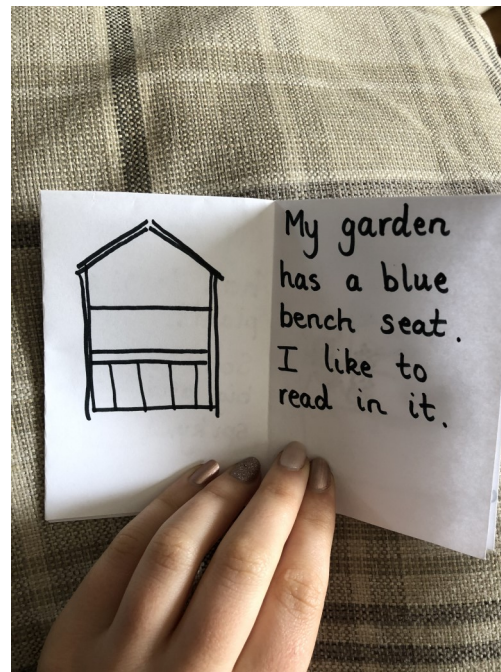 My garden
has a blue
bench seat.
I like to
read in it.